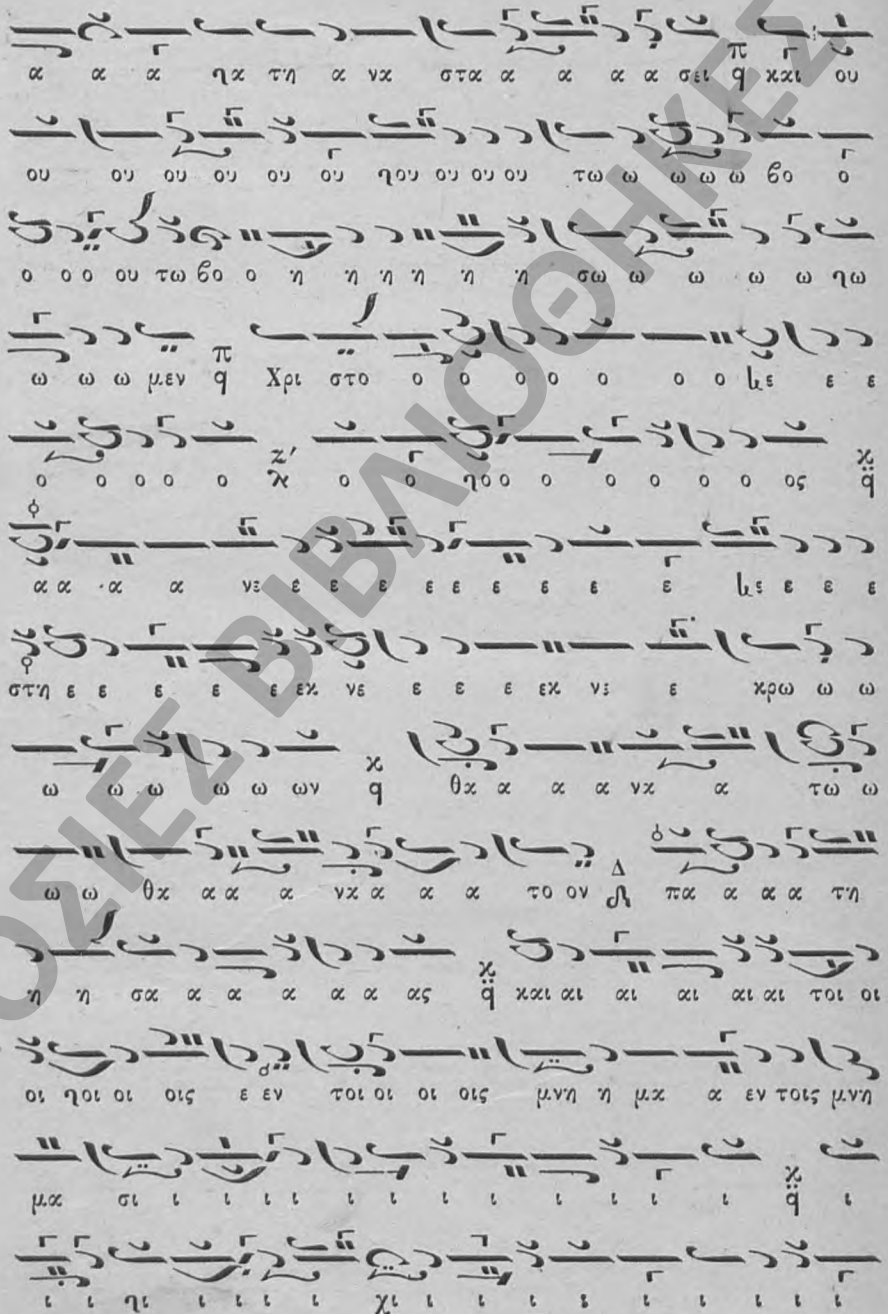 α α α ηα τη α να στα α α α α σει π q και ου
ου ου ου ου ου ου ηου ου ου ου τω ω ω ω ω βο ο
ο ο ο ου τω βο ο η η η η η η σω ω ω ω ω ηω
ω ω ω μεν π q Χρι στο ο ο ο ο ο ο ο ε ε ε
ο ο ο ο ο ζ' ο ο ηο ο ο ο ο ο ο ος ϰ q
α α α α νε ε ε ε ε ε ε ε ε ε ε ε ε ε
στη ε ε ε ε ε εκ νε ε ε ε εκ νε ε κρω ω ω
ω ω ω ω ω ων ϰ q θα α α α να α τω ω
ω ω θα α α α να α α α το ον Δ πα α α α τη
η η σα α α α α α ας ϰ q και αι αι αι αι αι τοι οι
οι ηοι οι οις ε εν τοι οι οι οις μνη η μα α εν τοις μνη
μα σι ι ι ι ι ι ι ι ι ι ι ι ϰ q ι
ι ι ηι ι ι ι ι χι ι ι ι ι ι ι ι ι
ΟΣΙΕΣ ΒΙΒΛΙΟΘΗΚΕΣ